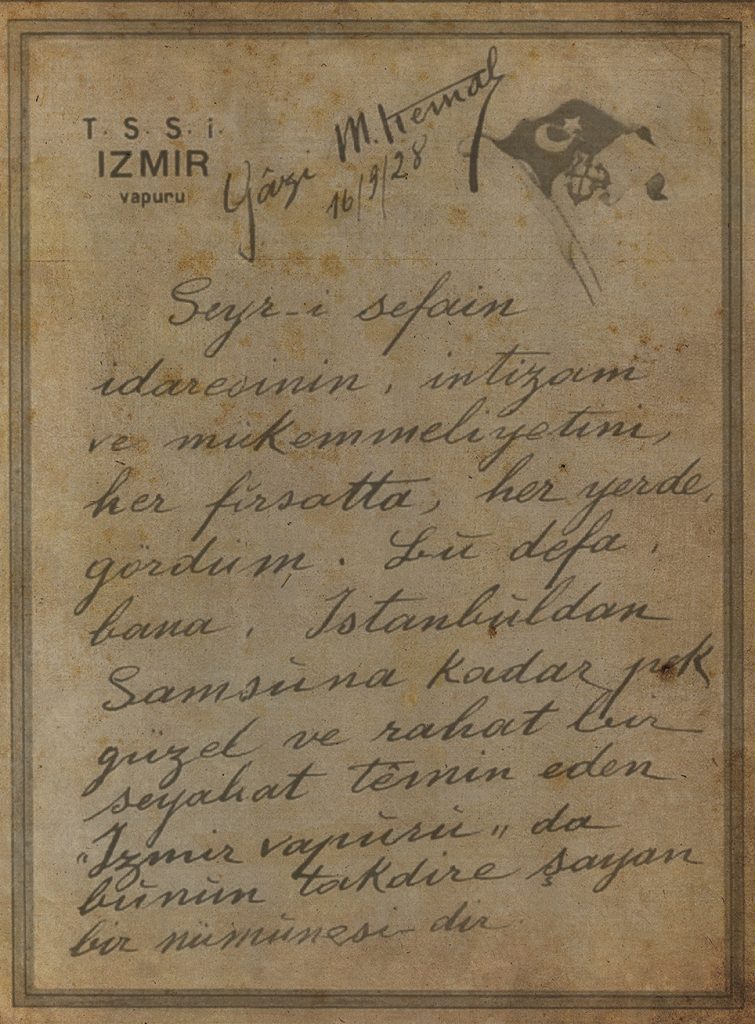 T. S. S. i.
IZMIR
vapuru
Gâzi M. Kemal
16/9/28
Seyr-i sefain
idaresinin, intizam
ve mükemmeliyetini,
her fırsatta, her yerde,
gördüm. Bu defa,
bana, Istanbuldan
Samsuna kadar pek
güzel ve rahat bir
seyahat têmin eden
"Izmir vapuru" da
bunun takdire şayan
bir nümunesi-dir